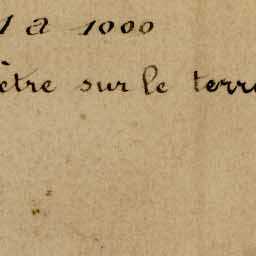 1 a 1000
ètre sur le terr